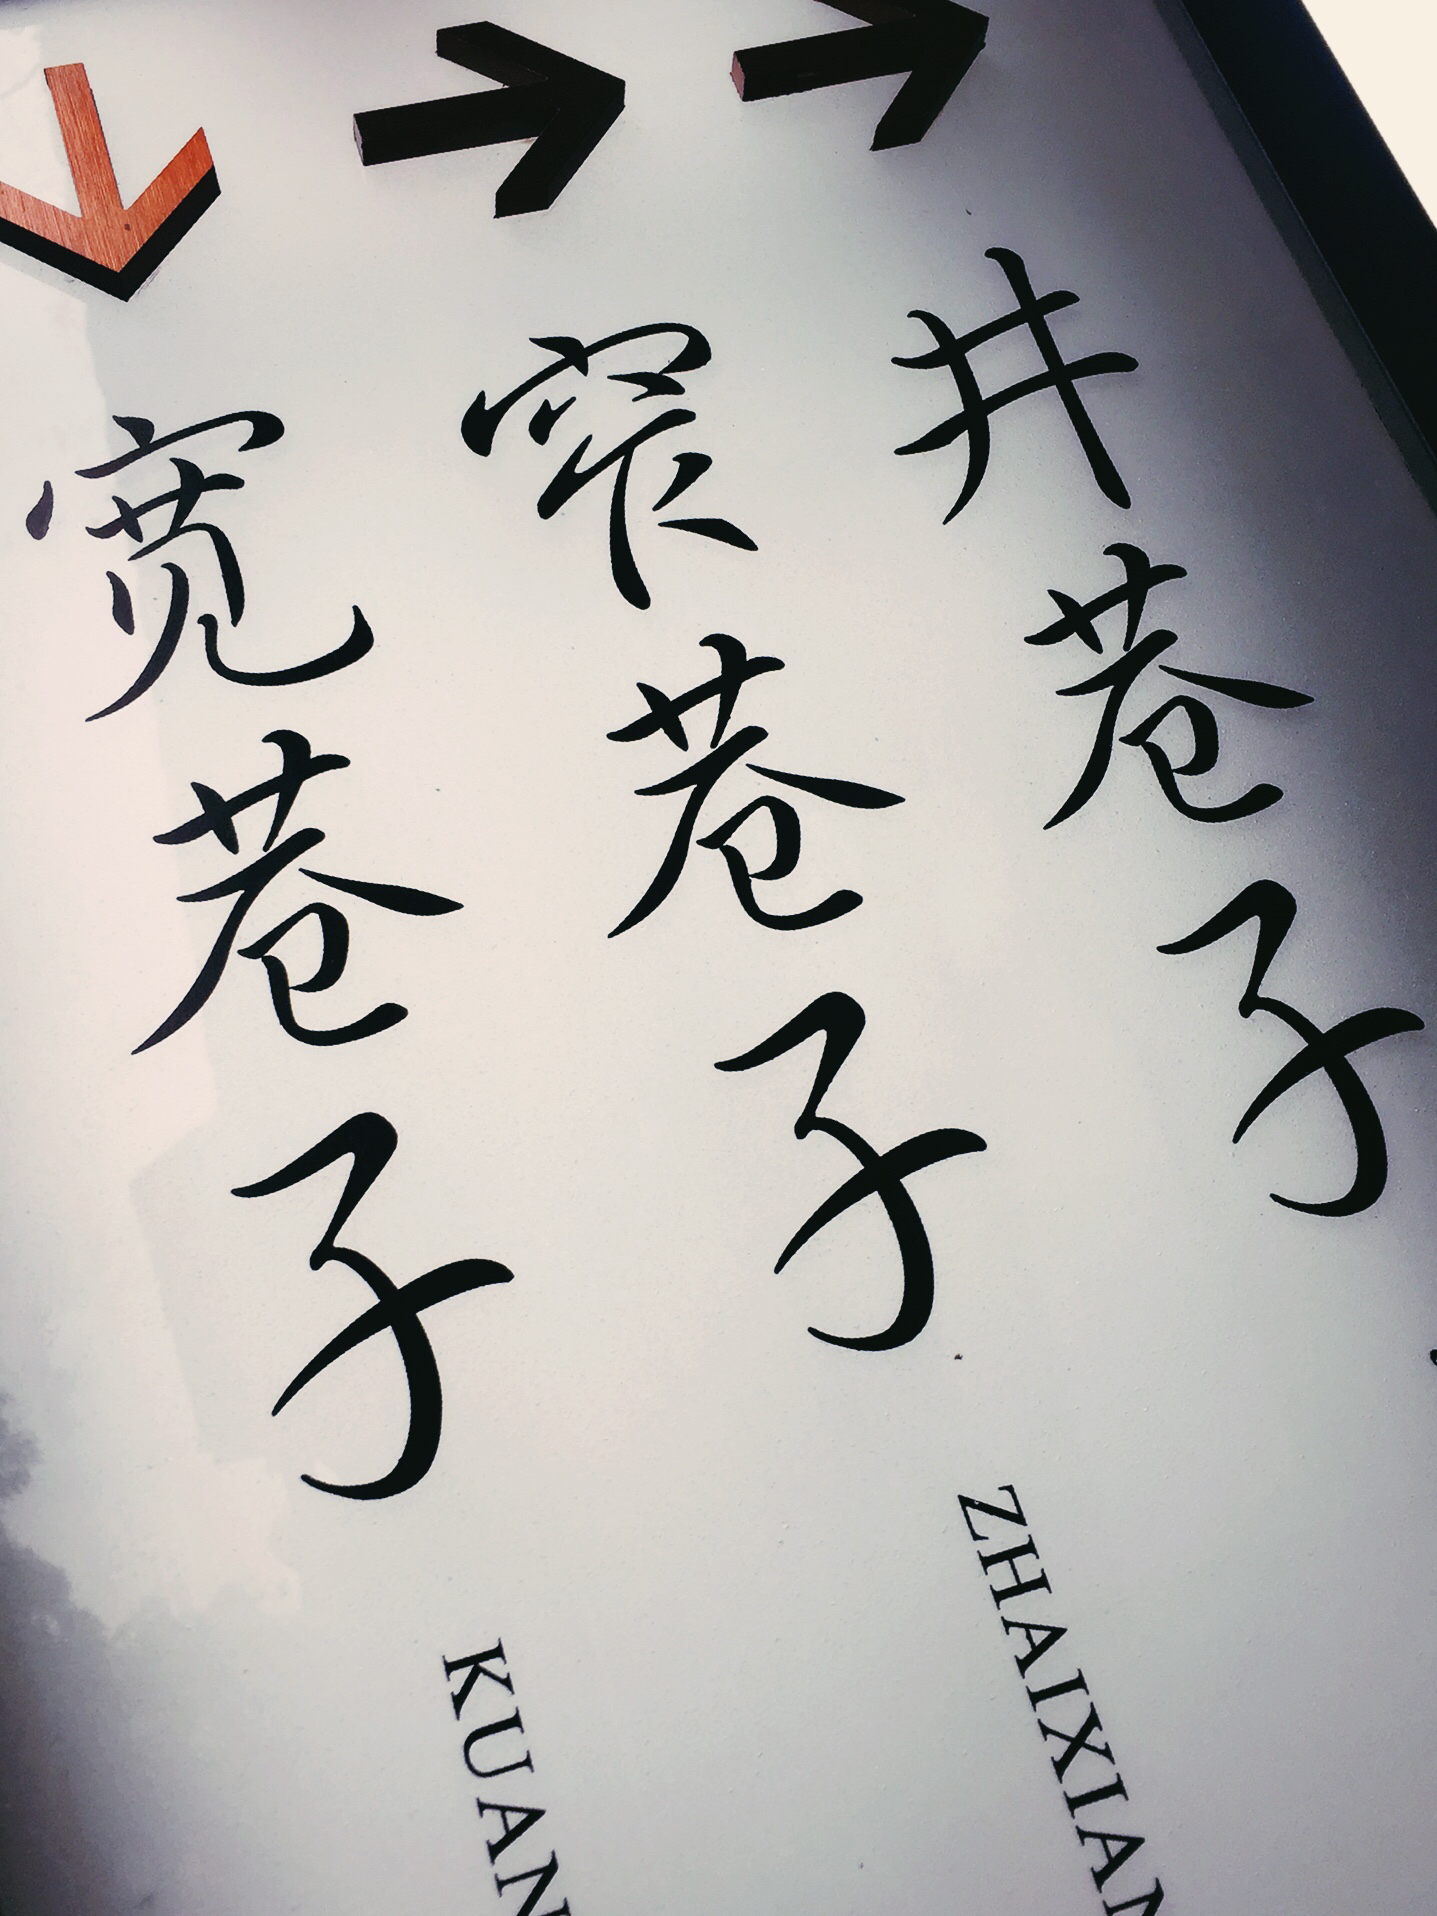 宽巷子
窄巷子
井巷子
KUAN
ZHAIXIAN